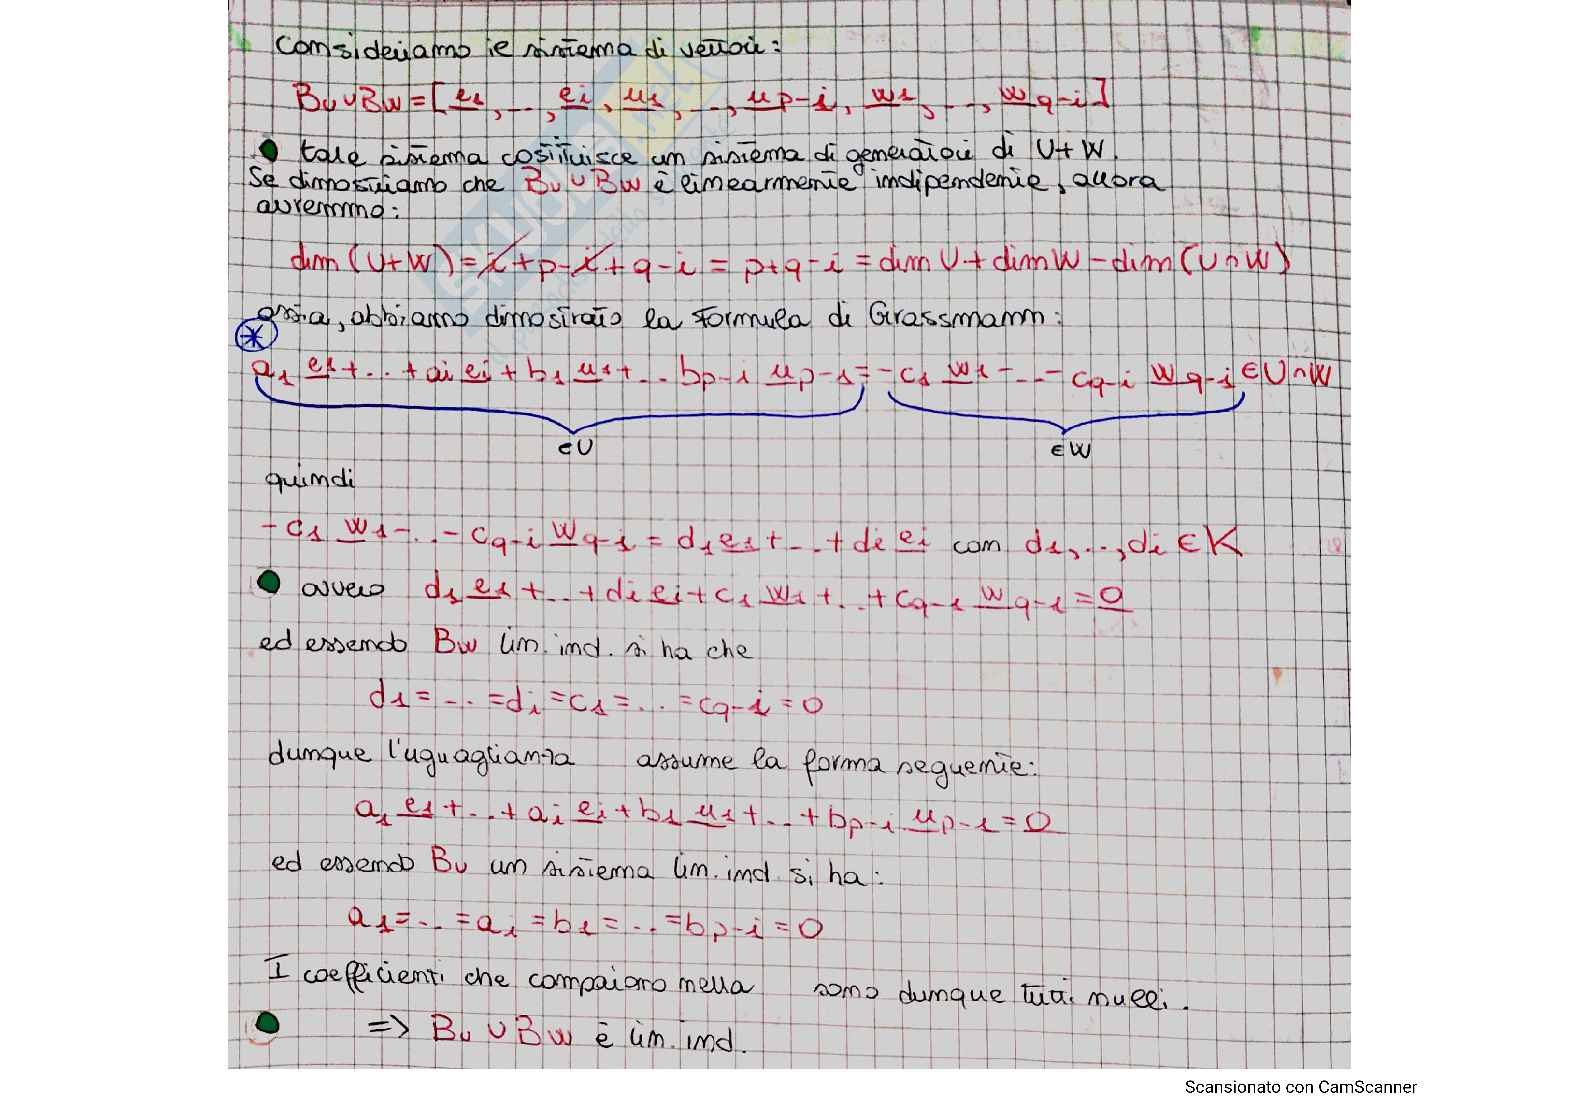 Consideriamo il sistema di vettori:
Bu∪Bw=[e1,...,ei,u1,...,up-i,w1,...,wq-i]
tale sistema costituisce un sistema di generatori di U+W.
Se dimostriamo che Bu∪Bw è linearmente indipendente, allora
avremmo:
dim(U+W)=i+p-i+q-i=p+q-i=dimU+dimW-dim(U∩W)
ossia, abbiamo dimostrato la formula di Grassmann:
*
a1 e1+..+ai ei+b1 u1+..bp-i up-i=-c1 w1-...-cq-i wq-i∈U∩W
∈U ∈W
quindi
-c1 w1-..-cq-i wq-i=d1e1+..+di ei con d1,..,di∈K
ovvero d1 e1+..+di ei+c1 w1+..+cq-i wq-i=0
ed essendo Bw lin. ind. si ha che
d1=..=di=c1=..=cq-i=0
dunque l'uguaglianza assume la forma seguente:
a1 e1+..+ai ei+b1 u1+..+bp-i up-i=0
ed essendo Bu un sistema lin. ind. si ha:
a1=..=ai=b1=..=bp-i=0
I coefficienti che compaiono nella sono dunque tutti nulli.
=> Bu∪Bw è lin. ind.
Scansionato con CamScanner